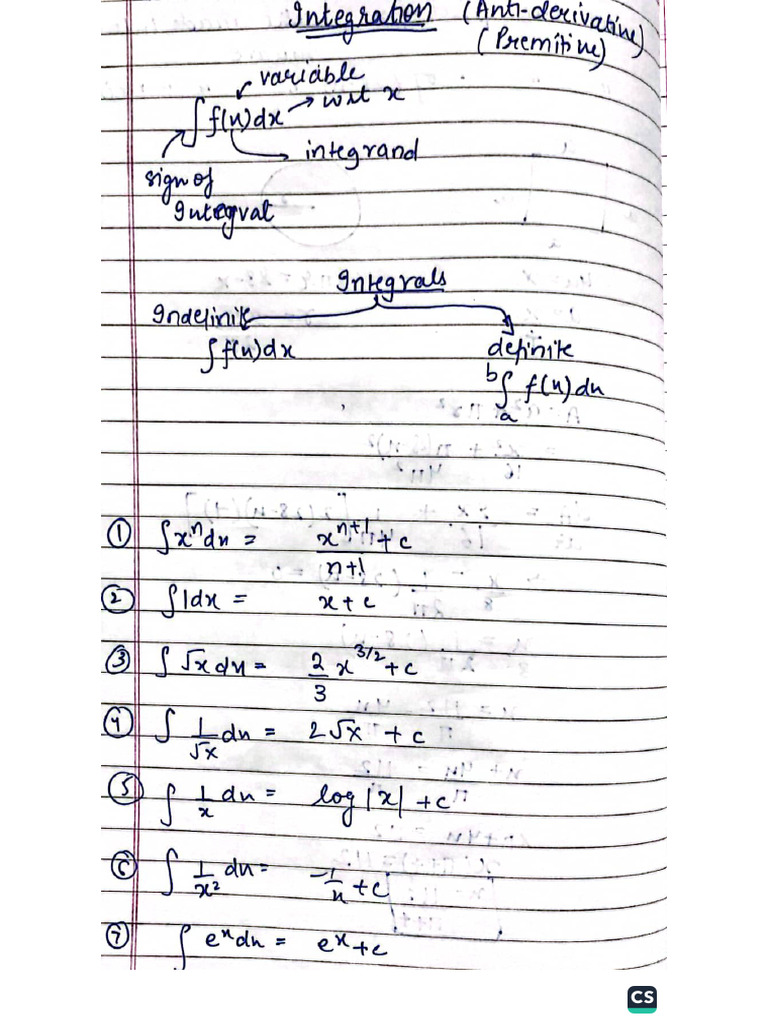 Integration (Anti-derivative)
(Premitive)
variable
∫ f(x)dx → wrt x
integrand
sign of
Integral
Integrals
Indefinite
∫ f(x)dx
definite
b∫a f(x)dx
① ∫xⁿdx = xⁿ⁺¹/n+1 + c
② ∫1dx = x + c
③ ∫√x dx = 2/3 x^3/2 + c
④ ∫ 1/√x dx = 2√x + c
⑤ ∫ 1/x dx = log|x| + c
⑥ ∫ 1/x² dx = -1/x + c
⑦ ∫ eˣdx = eˣ + c
CS